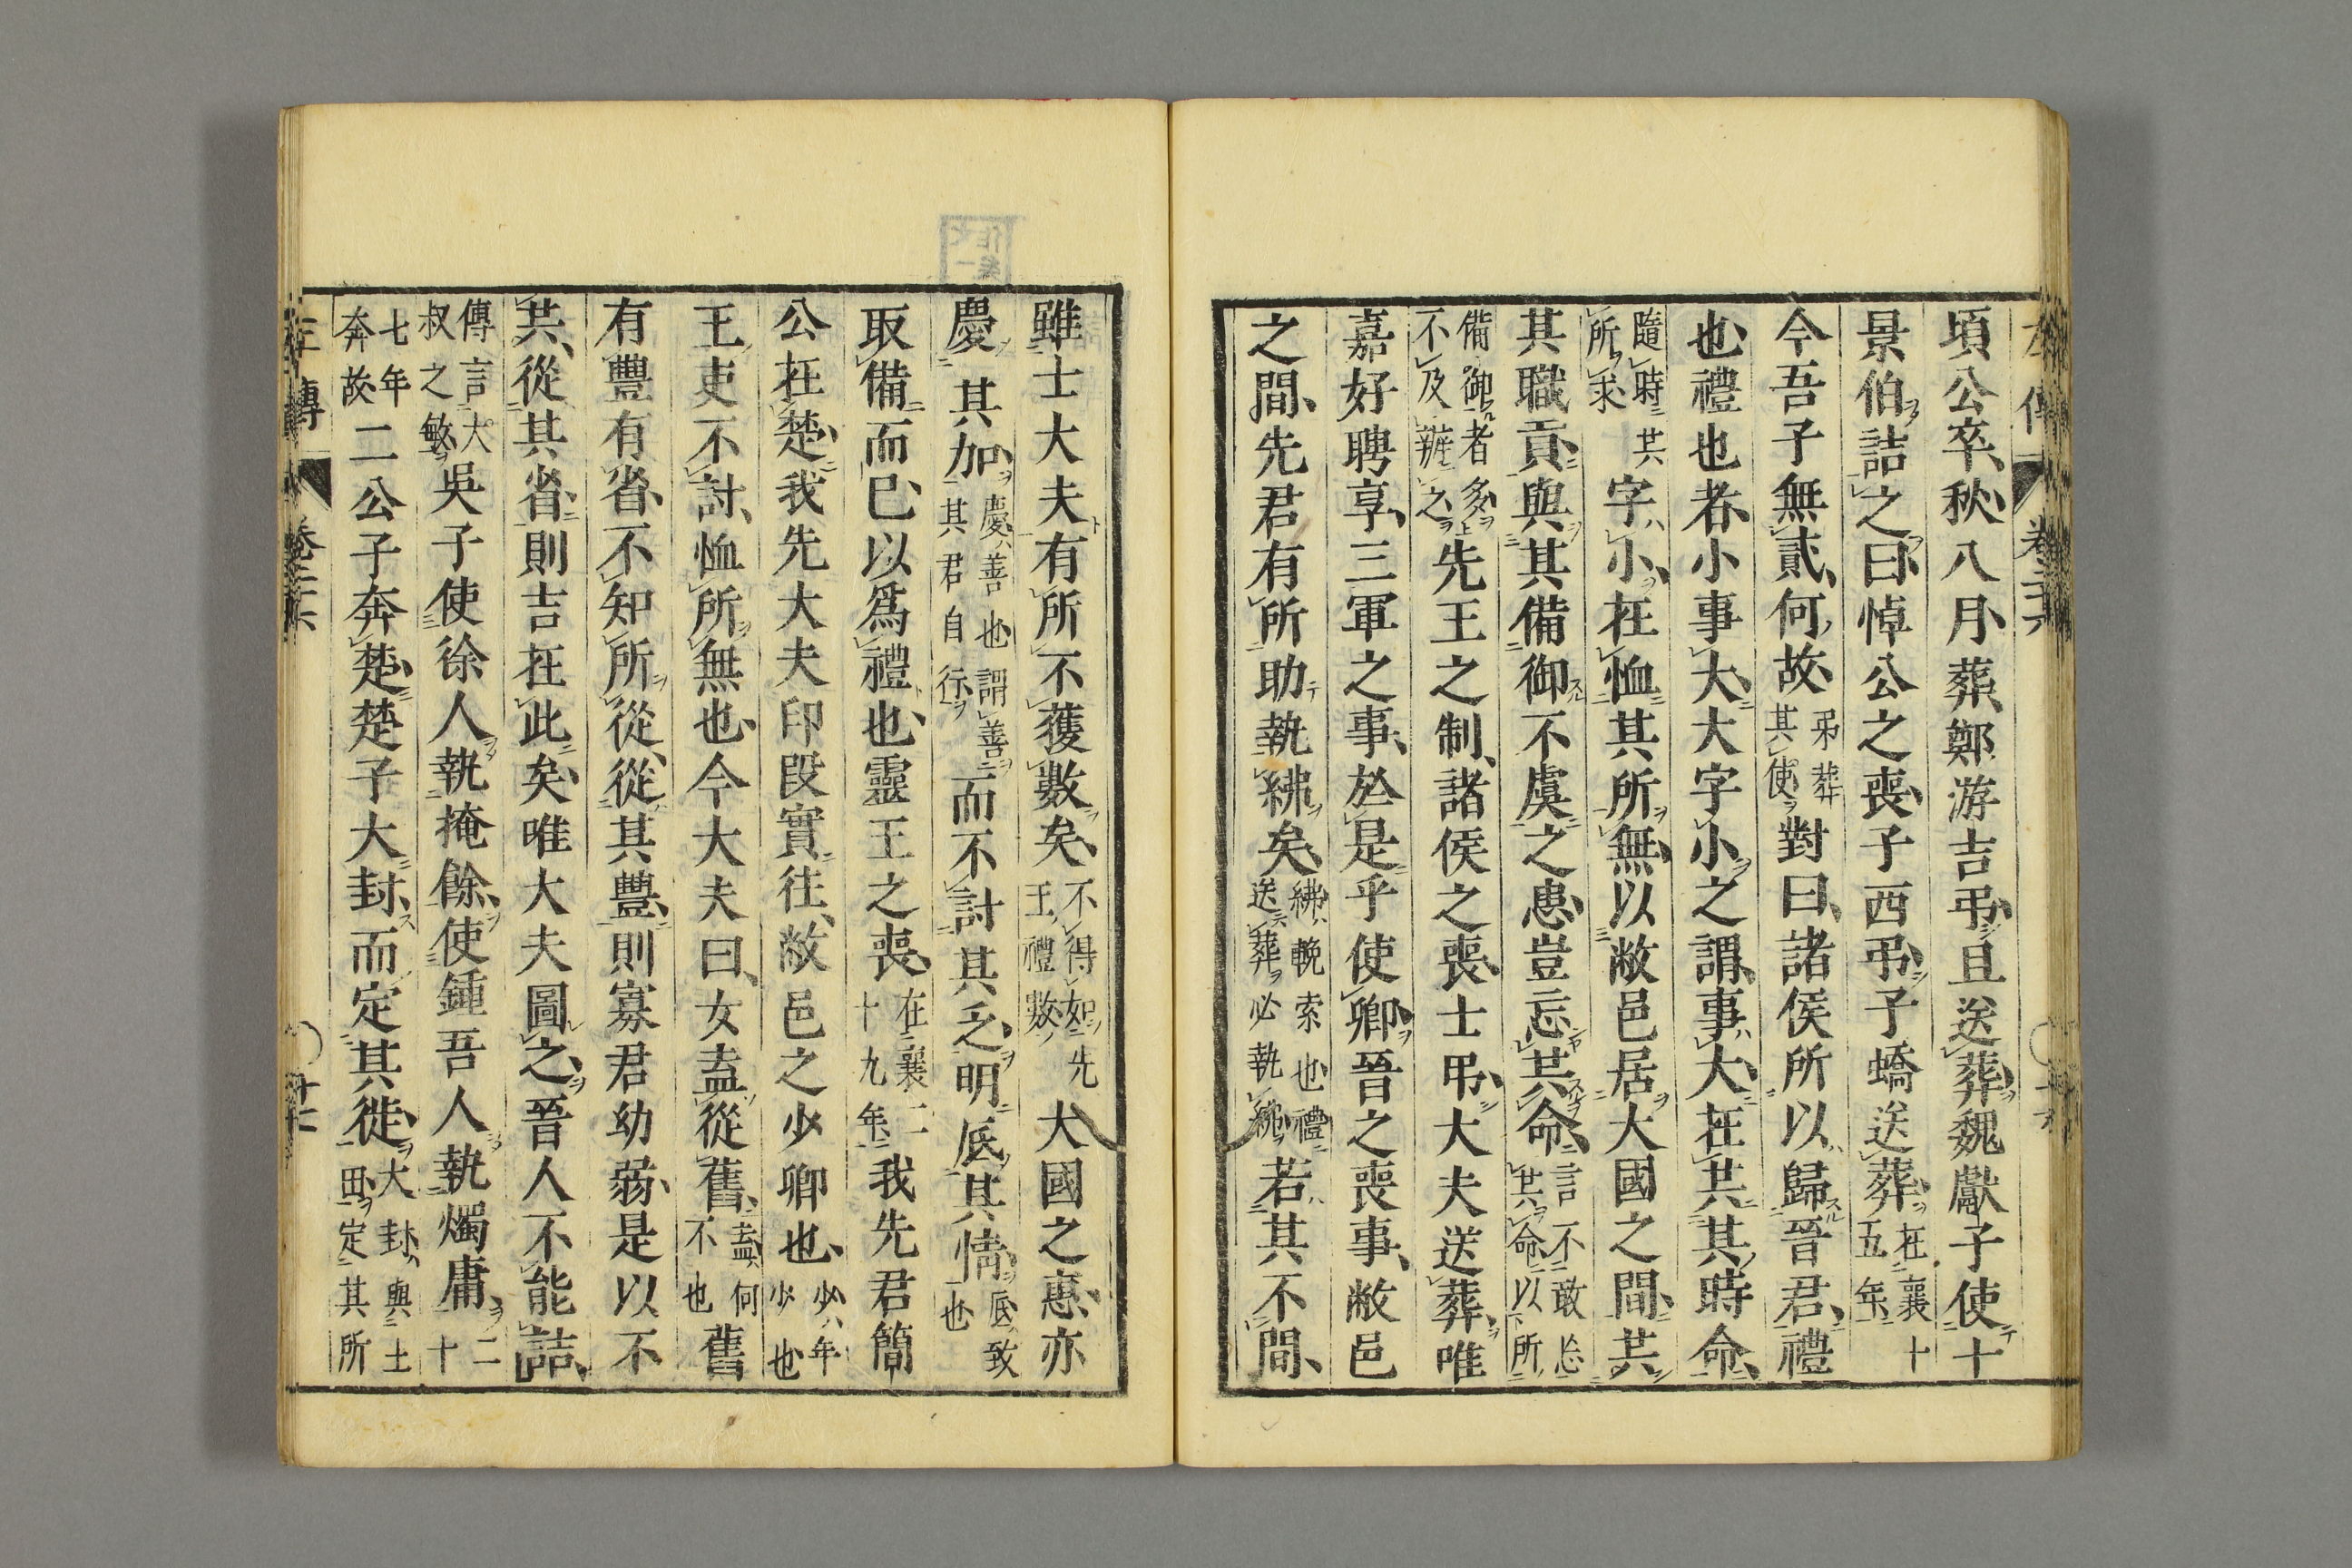 頃公卒秋八月葬鄭游吉弔且送葬魏獻子使士
景伯詰之曰悼公之喪子西弔子蟜送葬在襄十五年
今吾子無貳何故弔葬其使對曰諸侯所以歸晉君禮
也禮也者小事大大字小之謂事大在共其時命
隨時其所求字小在恤其所無以敝邑居大國之間共
其職貢與其備御不虞之患豈忘共命言不敢忘共命以所
備御者多不及辦之先王之制諸侯之喪士弔大夫送葬唯
嘉好聘享三軍之事於是乎使卿晉之喪事敝邑
之間先君有所助執紼矣紼輓索也禮送葬必執紼若其不間
雖士大夫有所不獲數矣不得如先王禮數大國之惠亦
慶其加慶善也謂善其君自行而不討其乏明底其情底致也
取備而已以爲禮也靈王之喪在襄二十九年我先君簡
公在楚我先大夫印段實往敝邑之少卿也少年少也
王吏不討恤所無也今大夫曰女盍從舊盍何不也舊
有豐有省不知所從從其豐則寡君幼弱是以不
共從其省則吉在此矣唯大夫圖之晉人不能詰
傳言大叔之敏吳子使徐人執掩餘使鍾吾人執燭庸二十
七年奔故二公子奔楚楚子大封而定其徙大封與土田定其所
左傳 卷二十六